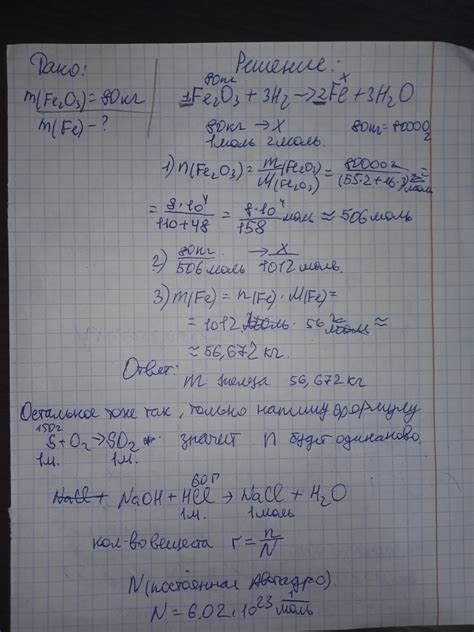 Дано:
Решение:
m(Fe₂O₃)=80кг
m(Fe) - ?
80кг x
1Fe₂O₃ + 3H₂ → 2Fe + 3H₂O
80кг → X 80кг = 80000г
1моль 2моль.
1) n(Fe₂O₃) = m(Fe₂O₃)/M(Fe₂O₃) = 80000г/(55·2+16·3) г/моль =
= 8·10⁴/110+48 = 8·10⁴/158 моль ≈ 506 моль
2) 80кг/506моль → X/1012 моль.
3) m(Fe) = n(Fe) · M(Fe) =
= 1012 моль · 56 г/моль ≈
≈ 56,672 кг
Ответ:
m железа 56,672 кг
Остальное тоже так, только напишу формулу
150г
S + O₂ → SO₂ значит n будет одинаково.
1м. 1м.
60г
NaCl + NaOH + HCl → NaCl + H₂O
1м. 1моль
кол-во вещества г = n/N
N (постоянная Авогадро)
N = 6,02 · 10²³ 1/моль